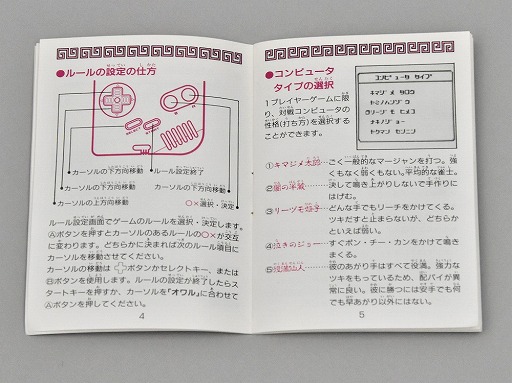 ●ルールの設定の仕方
カーソルの下方向移動
ルール設定終了
カーソルの下方向移動
カーソルの下方向移動
カーソルの上方向移動
○×選択・決定
ルール設定画面でゲームのルールを選択・決定します。
Ⓐボタンを押すとカーソルのあるルールの○×が交互
に変わります。どちらかに決まれば次のルール項目に
カーソルを移動させてください。
カーソルの移動は✚ボタンかセレクトキー、または
Ⓑボタンを使用します。ルールの設定が終了したらス
タートキーを押すか、カーソルを「オワル」に合わせて
Ⓐボタンを押してください。
4
●コンピュータ
タイプの選択
1プレイヤーゲームに限
り、対戦コンピュータの
性格(打ち方)を選択する
ことができます。
コンピュータ タイプ
キマジメ タロウ
ヤミノハンゾウ
リーヅモ ヒメコ
ナキノジョー
ヤクマン センニン
①キマジメ太郎……ごく一般的なマージャンを打つ。強
くもなく弱くもない。平均的な雀士。
②闇の半蔵……決して鳴き上がりしないで手作りに
はげむ。
③リーヅモ姫子……どんな手でもリーチをかけてくる。
ツキだすと止まらないが、どちらか
といえば弱い。
④泣きのジョー……すぐポン・チー・カンをかけて鳴き
まくる。
⑤役満仙人……彼のあがり手はすべて役満。強力な
ツキをもっているため、配パイが異
常に良い。彼に勝つには安手でも何
でも早あがり以外にはない。
5